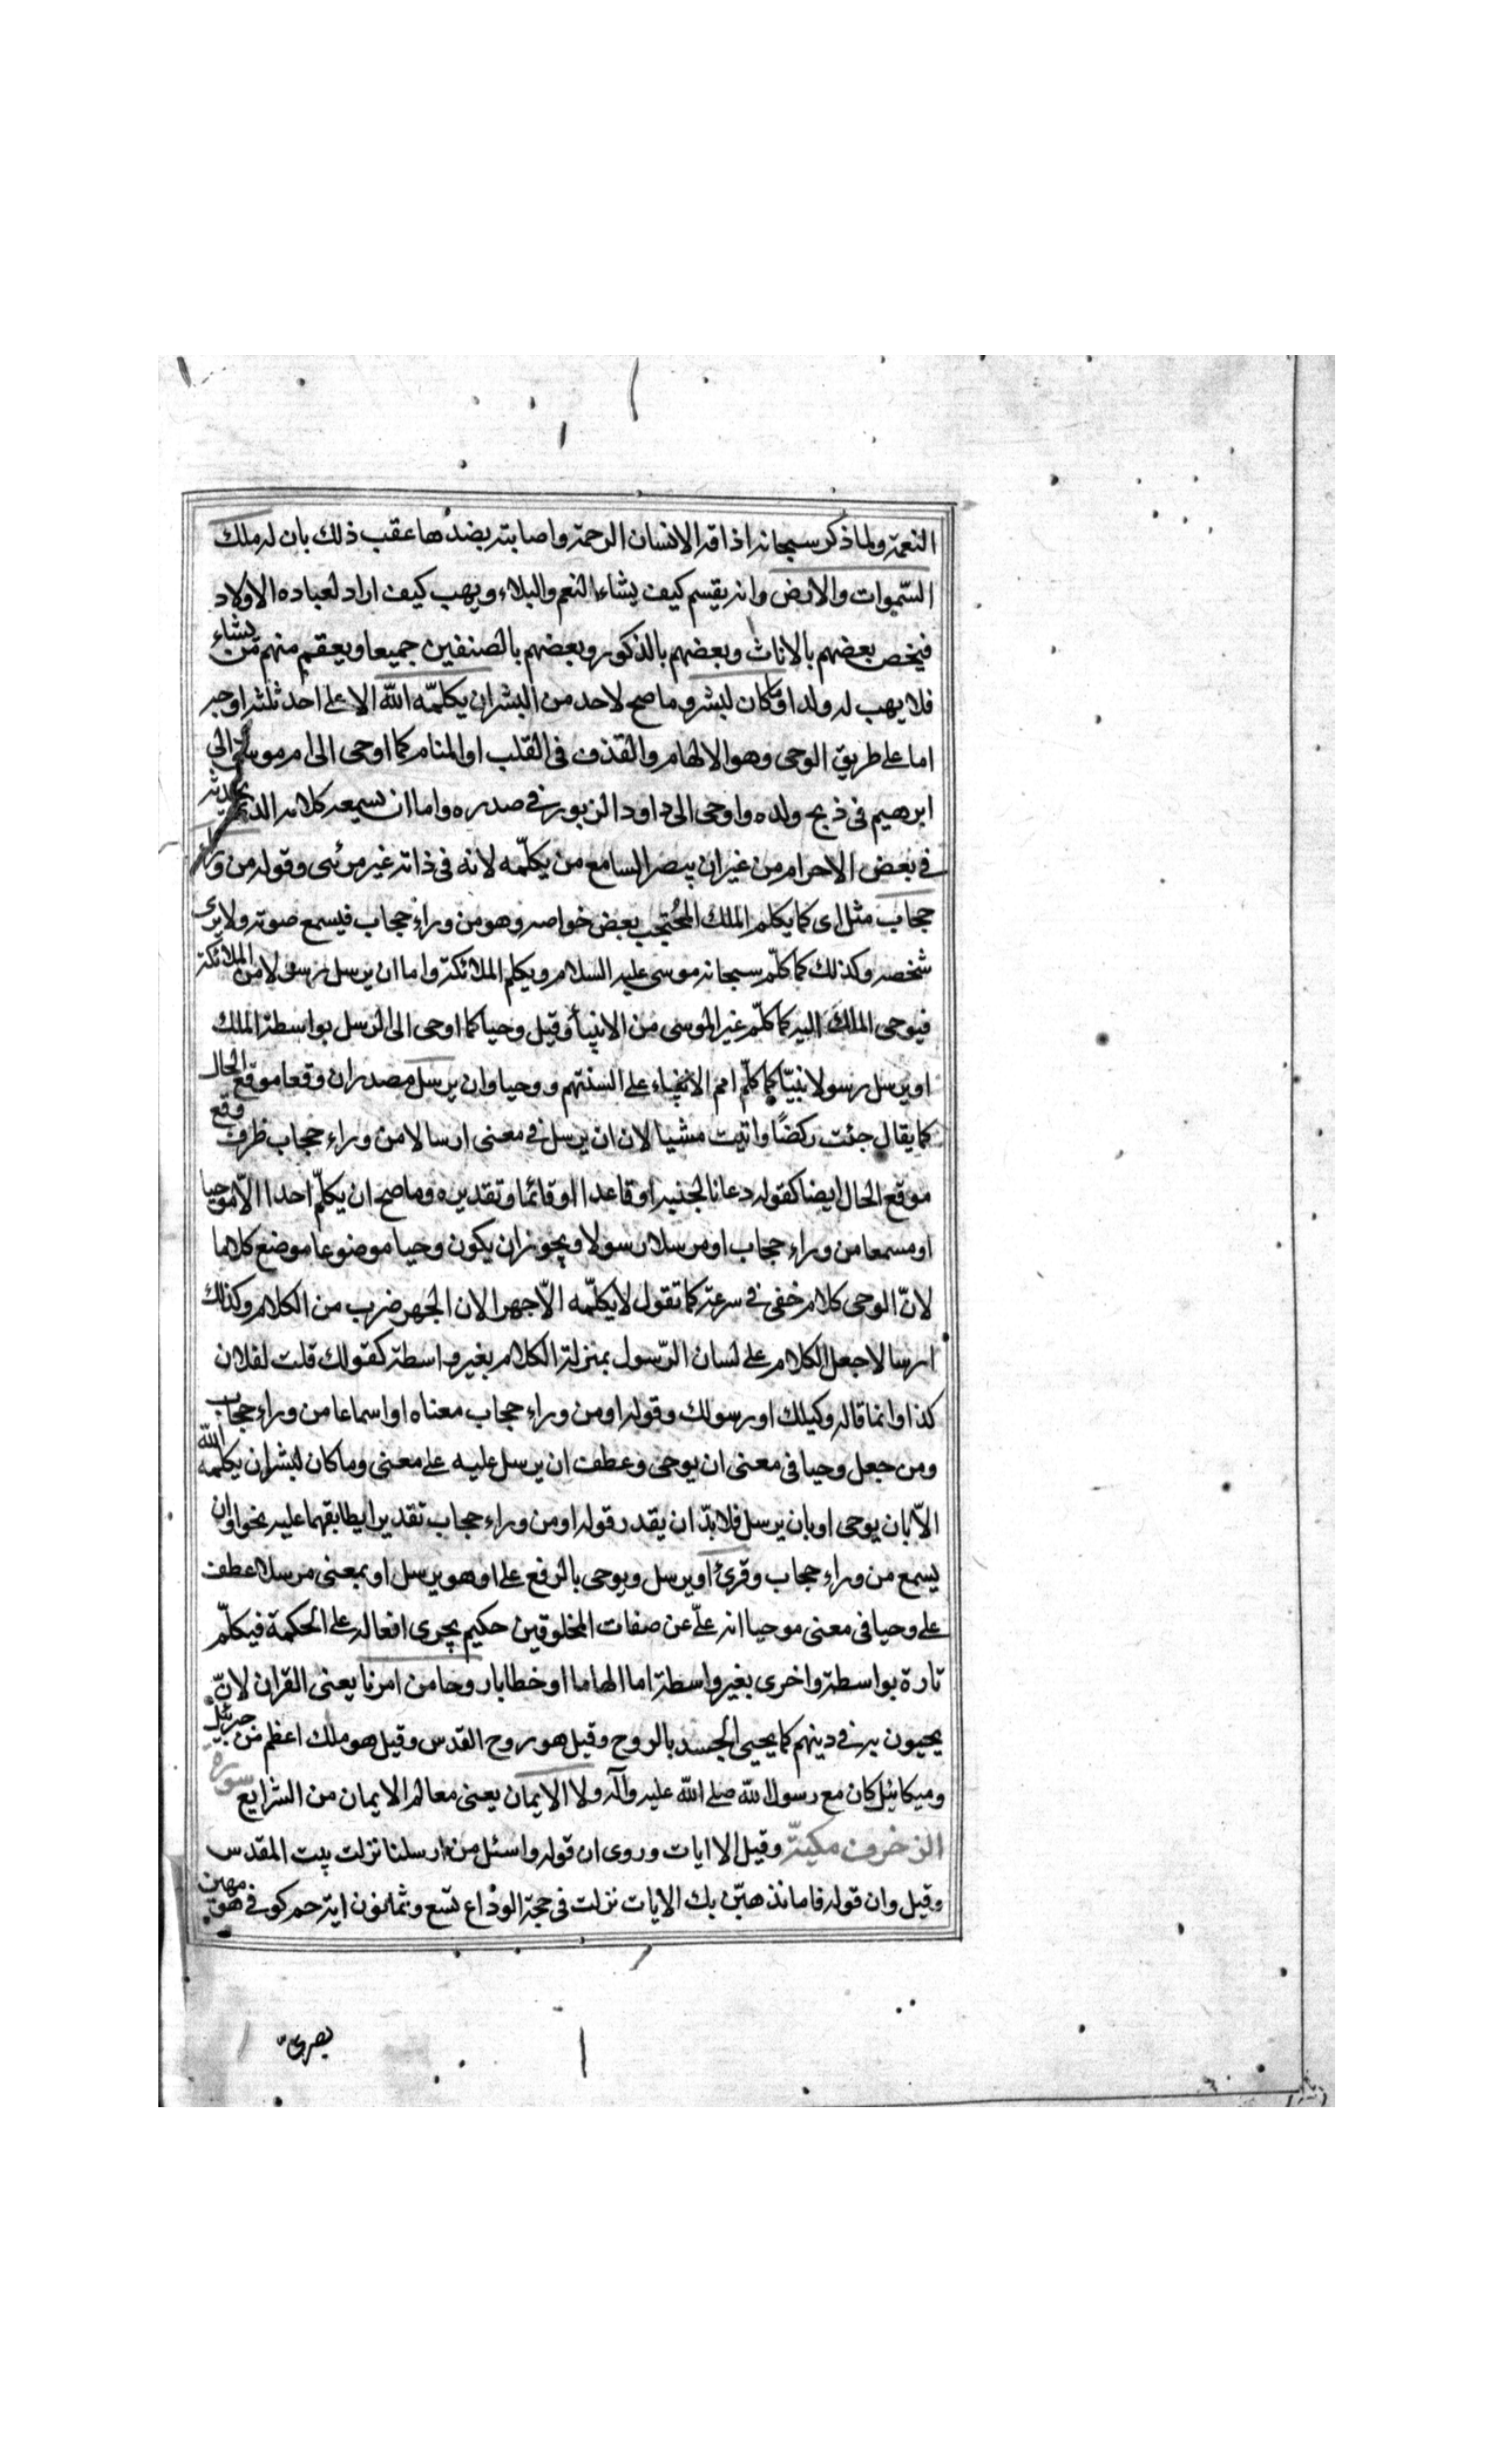 النعمة ولما ذكر سبحانه اذاقة الانسان الرحمة واصابته بضدها عقب ذلك بان له ملك
السّموات والارض وانه يقسم كيف يشاء النعم والبلاء ويهب كيف اراد لعباده الاولاد
فيخص بعضهم بالاناث وبعضهم بالذكور وبعضهم بالصنفين جميعا ويعقم منهم من يشاء
فلا يهب له ولدا وما كان لبشر وما صح لاحد من البشر ان يكلّمه اللّه الا على احد ثلثة اوجه
اما على طريق الوحى وهو الالهام والقذف فى القلب او المنام كما اوحى الى ام موسى والى
ابرهيم فى ذبح ولده واوحى الى داود الزبور فى صدره واما ان يسمعه كلامه الذى يحدثه
فى بعض الاجرام من غير ان يبصر السامع من يكلّمه لانه فى ذاته غير مرئى وقوله من وراء
حجاب مثل اى كما يكلم الملك المحُتجب بعض خواصه وهو من وراء حجاب فيسمع صوته ولا يرى
شخصه وكذلك كما كلّم سبحانه موسى عليه السلام ويكلم الملائكة واما ان يرسل رسولا من الملائكة
فيوحى الملك اليه كما كلّم غير الموسى من الانبياء وقيل وحيا كما اوحى الى الرسل بواسطة الملك
او يرسل رسولا نبيّا كما كلّم امم الانبياء على السنتهم ووحيا وان يرسل مصدران وقعا موقع الحال
كما يقال جئت ركضًا واتيت مشيا لان ان يرسل فى معنى ارسالا من وراء حجاب ظرف وقع
موقع الحال ايضا كقوله دعانا لجنبه او قاعدا او قائما وتقديره وما صح ان يكلّم احدا الّا موحيا
او مسمعا من وراء حجاب او مرسلا رسولا ويجوز ان يكون وحيا موضوعا موضع كلاما
لانّ الوحى كلام خفى فى سرعة كما تقول لا يكلّمه الّا جهرا لان الجهر ضرب من الكلام وكذلك
ارسالا جعل الكلام على لسان الرّسول بمنزلة الكلام بغير واسطة كقولك قلت لفلان
كذا وانما قاله وكيلك او رسولك وقوله او من وراء حجاب معناه او اسماعا من وراء حجاب
ومن جعل وحيا فى معنى ان يوحى وعطف ان يرسل عليه على معنى وما كان لبشر ان يكلّمه اللّه
الّا بان يوحى او بان يرسل فلا بدّ ان يقدر قوله او من وراء حجاب تقديرا يطابقهما عليه نحو او ان
يسمع من وراء حجاب وقرئ او يرسل ويوحى بالرفع على او هو يرسل او بمعنى مرسلا عطف
على وحيا فى معنى موحيا انه علىّ عن صفات المخلوقين حكيم يجرى افعاله على الحكمة فيكلّم
تارة بواسطة واخرى بغير واسطة اما الهاما او خطابا روحا من امرنا يعنى القران لانّ
يحيون به فى دينهم كما يحيى الجسد بالروح وقيل هو روح القدس وقيل هو ملك اعظم من جبرئيل
وميكائيل كان مع رسول اللّه صلى اللّه عليه وآله ولا الايمان يعنى معالم الايمان من الشرايع سورة
الزخرف مكيّة وقيل الا ايات وروى ان قوله واسئل من ارسلنا نزلت ببيت المقدس
وقيل وان قوله فاما نذهبّن بك الايات نزلت فى حجة الوداع تسع وثمانون اية حم كوفى هو مهين
بصرى